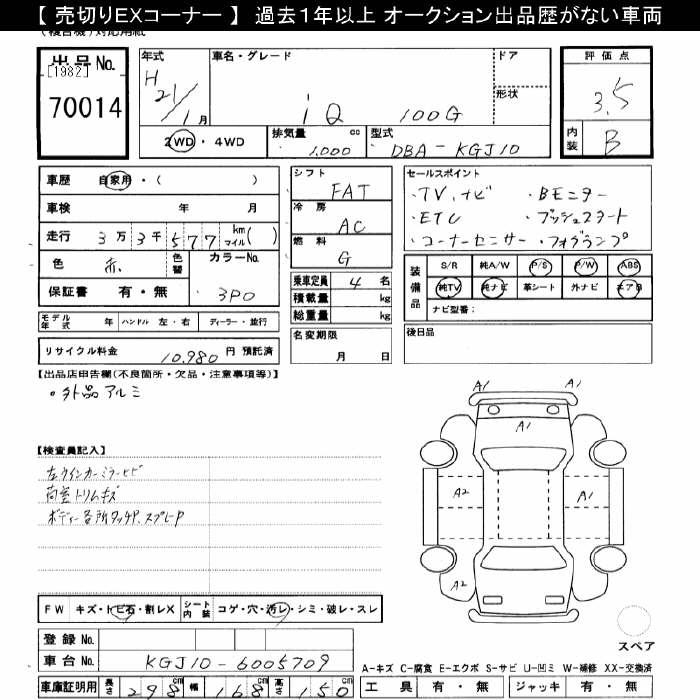 【 売切りEXコーナー 】 過去1年以上 オークション出品歴がない車両
出品No.
[1982]
70014
年式
H 21/1 月
車名・グレード
iQ 100G
ドア
形状
2WD・4WD
排気量 cc
1,000
型式
DBA-KGJ10
評価点
3.5
内装
B
車歴 自家用・( )
車検 年 月
走行 3万3千577 km マイル( )
色 赤 色替 カラーNo.
3P0
保証書 有・無
シフト
FAT
冷房
AC
燃料
G
乗車定員 4 名
積載量 kg
総重量 kg
名変期限
月 日
セールスポイント
・TV,ナビ ・Bモニター
・ETC ・プッシュスタート
・コーナーセンサー ・フォグランプ
装備品
S/R 純A/W P/S P/W ABS
純TV 純ナビ 革シート 外ナビ エアB
ナビ型番:
後日品
モデル年式 年 ハンドル 左・右 ディーラー・並行
リサイクル料金 10,980 円 預託済
【出品店申告欄(不良箇所・欠品・注意事項等)】
・外品アルミ
【検査員記入】
左ウインカーミラーヒビ
荷室トリムキズ
ボディー各所タッチP.スプレーP
A1 A1
A1
A2 A1
A2
FW キズ・トビ石・割レX シート内装 コゲ・穴・汚レ・シミ・破レ・スレ
登録No.
車台No. KGJ10-6005709
スペア
A-キズ C-腐食 E-エクボ S-サビ U-凹ミ W-補修 XX-交換済
車庫証明用 長さ 298 cm 幅 168 cm 高さ 150 cm
工具 有・無 ジャッキ 有・無